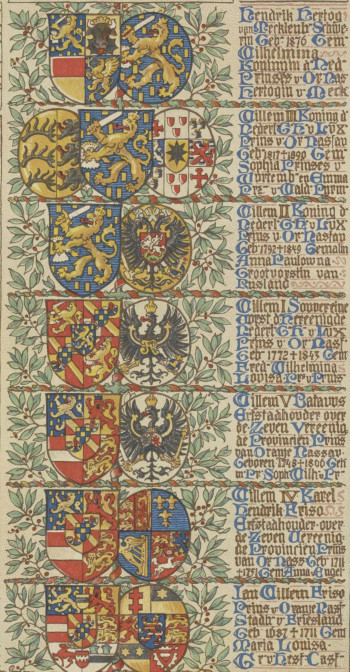 Hendrik Hertog
van Mecklenb: Schwe-
rin Geb: 1876 Gem
Wilhelmina
Koningin d Ned
Prinses v Or Nas
Hertogin v Meck
Willem III Koning d
Nederl GH v Lux
Prins v Or Nassau
Geb 1817+1890 Gem
Sophia Prinses v
Wurtemb en Emma
Prs v Wald Pyrm
Willem II Koning d
Nederl GH v Lux
Prins v Or Nassau
Geb 1792+1849 Gemalin
Anna Paulowna
Grootvorstin van
Rusland
Willem I Souvereine
Vorst d Vereenigde
Nederl GH v Lux
Prins v Or Nass
Geb 1772+1843 Gem
Fred Wilhelmina
Louisa Prs v Prus
Willem V Batavus
Erfstadhouder over
de Zeven Vereenig
de Provincien Prins
van Oranje Nassau
Geboren 1748+1806 Geh
m Pr Soph Wilh v Pr
Willem IV Karel
Hendrik Friso
Erfstadhouder over
de Zeven Vereenig
de Provincien Prins
van Or Nass Geb 1711
+1751 Gem Anna Engel
Jan Willem Friso
Prins v Oranje Nass
Stadh v Friesland
Geb 1687+1711 Gem
Maria Louisa
G v Hess Cass